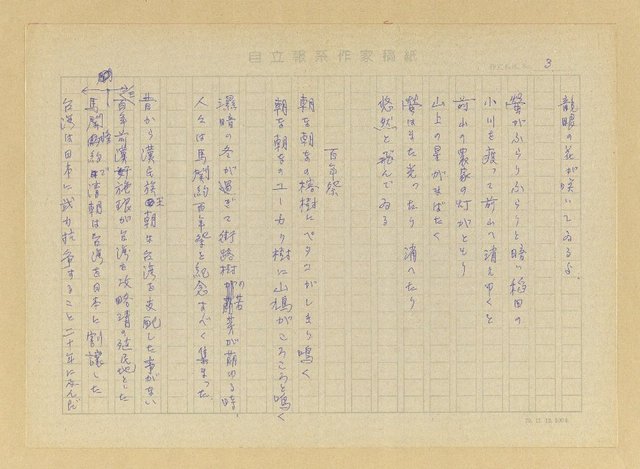 自立報系作家稿紙
3
龍眼の花が咲いてゐるよ
螢がふらりふらりと暗い稲田の
小川を渡って前山へ消えゆくと
前山の農家の灯がともり
山上の星がまばたく
螢はまた光ったり消へたり
悠然と飛んでゐる
百年祭
朝な朝なの樹にペタコがしきり鳴く
朝な朝なのユーカリ樹に山鳩がころころと鳴く
濕暗の冬が過ぎて街路樹の若芽が萌ゆる時、
人々は馬関約百年祭を紀念すべく集まった
昔から漢民族王朝は台湾を支配した事がない
百年前漢奸施琅が台湾を攻略清の殖民地とした
馬関條約で清朝は台湾を日本に割讓した
台湾は日本に武力抗争すること二十年に及んだ